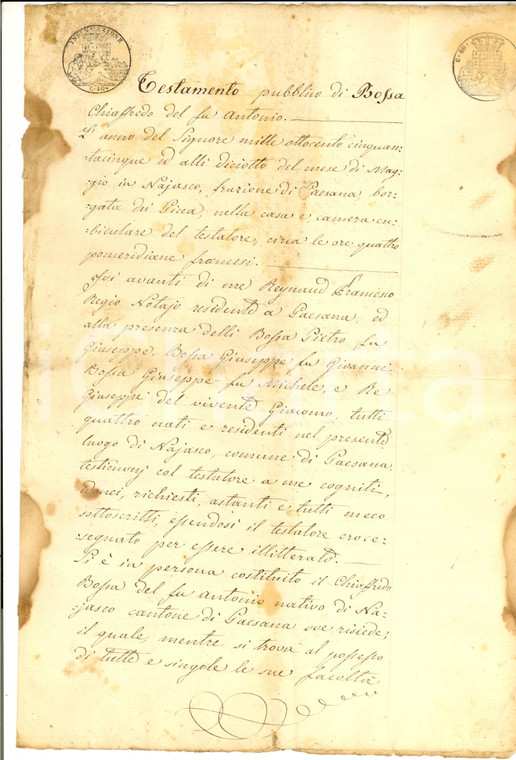 INSINUAZIONE
C. 40
C. 80
Testamento pubblico di Bossa
Chiaffredo del fu Antonio.
L'anno del Signore mille ottocento cinquan
tacinque ed alli diciotto del mese di Mag-
gio in Najasco, frazione di Paesana bor-
gata dei Picca, nella casa e camera cu-
biculare del testatore, circa le ore quattro
pomeridiane francesi.
Ivi avanti di me Reynaud Francesco
Regio Notajo residente a Paesana, ed
alla presenza delli Bossa Pietro fu
Giuseppe, Bossa Giuseppe fu Giovanni
Bossa Giuseppe fu Michele, e Re
Giuseppe del vivente Giacomo, tutti
quattro nati e residenti nel presente
luogo di Najasco, comune di Paesana
testimonj col testatore a me cogniti,
idonei, richiesti, astanti e tutti meco
sottoscritti, essendosi il testatore croce-
segnato per essere illitterato.
Si è in persona costituito il Chiaffredo
Bossa del fu Antonio nativo di Na-
jasco cantone di Paesana ove risiede,
il quale mentre si trova al possesso
di tutte e singole le sue facoltà